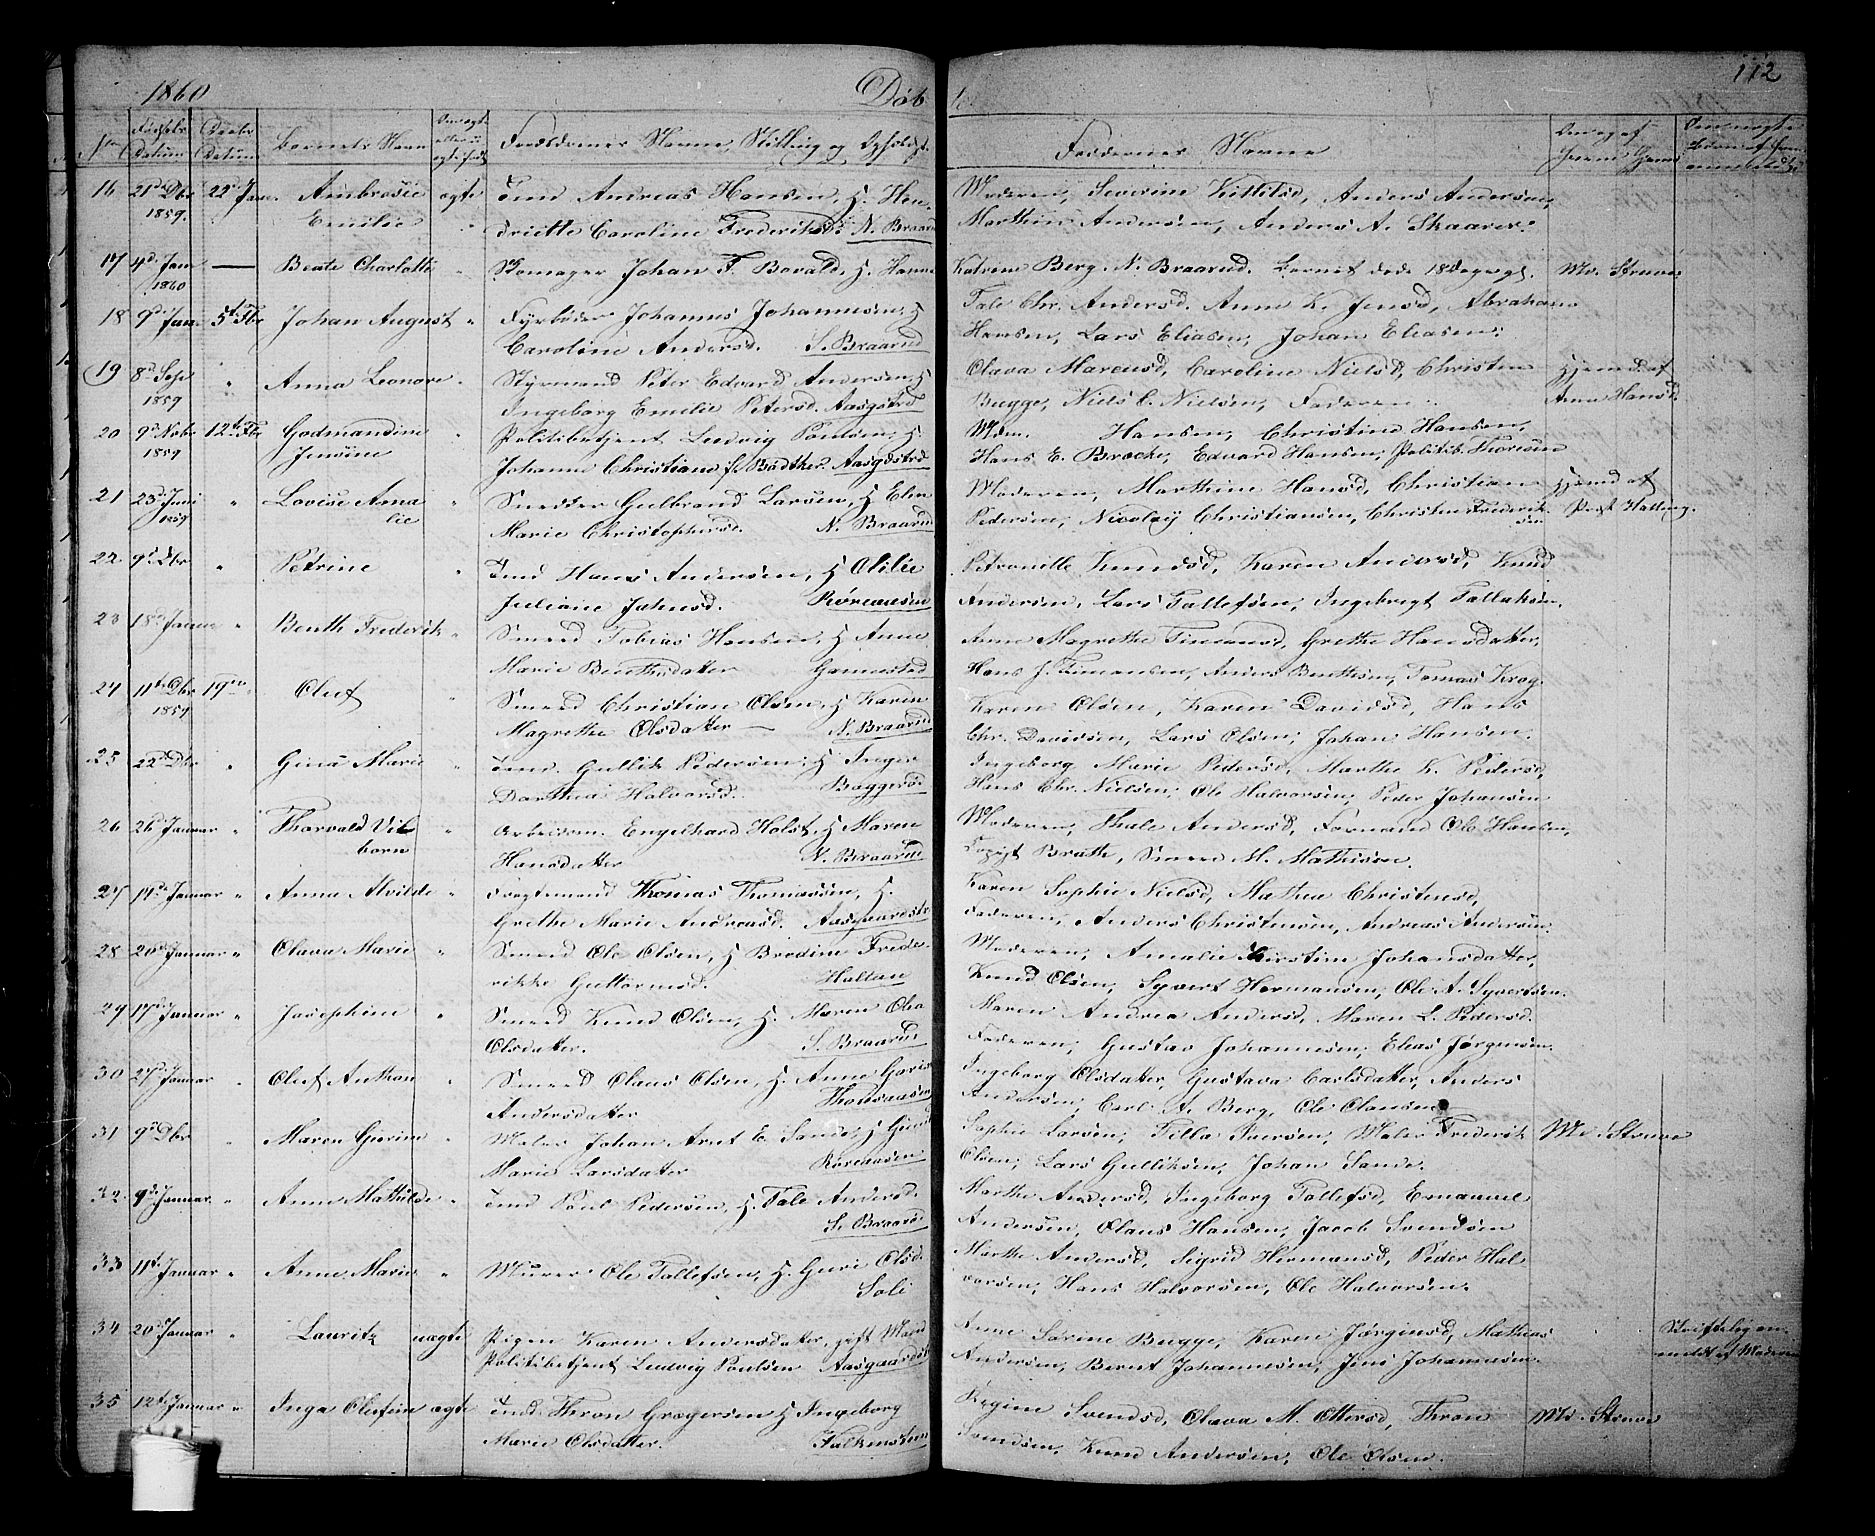 1860
Døb
112
No
Fødsels Datum
Daabs Datum
Barnets Navn
Forældrenes Navne, Stilling og Opholdst.
Faddernes Navne
16 21de Dbr 1859. 22 Jan. Ambrosie Emilie ægte Tmd Andreas Hansen, H. Hen-
driette Caroline Frederiksd. N. Braarud
Moderen, Severine Kittilsd, Anders Andersen,
Marthin Andersen, Anders A. Skaarer.
17 4d Jan 1860 — Beate Charlotte " Skomager Johan F. Bovald, H. Hanne
Katrine Berg. N. Braarud. Barnet døde 18 Dage gl. Md. Struve
18 9d Jan 5te Fbr Johan August " Fyrbøder Johannes Johannesen, H
Caroline Andersd. S. Braarud
Tale Chr. Andersd. Anne K. Jensd, Abraham
Hansen, Lars Eliasen, Johan Eliasen.
19 8d Sep 1859 " Anna Leonore " Styrmand Peter Edvard Andersen, H
Ingeborg Emilie Petersd. Aasgstrd
Olava Marcusd, Caroline Nielsd, Christen
Bugge, Niels C. Nielsen, Faderen.
Hjemd af
Anne Hansd
20 9d Nobr 1859 12te Fbr Godmandine Jensine " Politibetjent Ludvig Poulsen, H.
Johanne Christiane f. Bødther. Aasgdstrd
Mdm. Hansen, Christine Hansen,
Hans E. Brache, Edvard Hansen, Politib.
21 23d Juni 1859 " Lovise Amalie " Snedker Gulbrand Larsen, H Elen
Marie Christophersd. N. Braarud
Moderen, Marthine Hansd, Christian
Pedersen, Nicolay Christiansen, Christen Frederiksen
Hjemd af
Præst Halling.
22 9d Dbr " Petrine " Tmd Hans Andersen, H Otilie
Juliane Johnsd. Røreaasen
Petronille Knudsd, Karen Andersd, Knud
Andersen, Lars Tallefsen, Ingebregt Tallaksen.
23 18d Januar " Benth Frederik " Smeed Tobias Hansen, H Anne
Marie Benthsdatter Gannestad
Anne Magrethe Timansd, Grethe Hansdatter,
Hans J. Timansen, Anders Benthsen, Tomas Krog.
24 11te Dbr 1859 19de Oluf " Smeed Christian Olsen, H Karen
Magrethe Olsdatter — N. Braarud
Karen Olsen, Karen Davidsd, Hans
Chr. Davidsen, Lars Olsen, Johan Hansen.
25 22d Dbr " Gina Marie " Tmd. Gullik Pedersen, H Inger
Dorthea Halvorsd. Baggerød
Ingeborg Marie Pedersd, Marthe K. Pedersd,
Hans Chr. Nielsen, Ole Halvorsen, Peder Johansen
26 26d Januar " Thorvald Vilborn " Arbeidsm. Engelhard Holst, H Maren
Hansdatter N. Braarud
Moderen, Thale Andersd, Formand Ole Hansen,
Brath, Smeed M. Mathisen.
27 14d Januar " Anna Alvilde " Fragtemand Thomas Thomassen, H.
Grethe Marie Andreasd. Aasgaardstr
Karen Sophie Nielsd, Mathea Christensd,
Faderen, Anders Christensen, Andreas Andersen.
28 20d Januar " Olava Marie " Smeed Ole Olsen, H Bredine Frede-
rikke Guttormsd. Haltan
Moderen, Amalie Kirstine Johansdatter,
Knud Olsen, Syvert Hermansen, Ole A. Syvertsen.
29 17d Januar " Josephine " Smeed Knud Olsen, H. Maren Olea
Olsdatter. S. Braarud
Maren Andrea Andersd, Maren L. Pedersd.
Faderen, Gustav Johannesen, Elias Jørgensen.
30 27d Januar " Oluf Anthon " Smeed Olaus Olsen, H. Anne Goria
Andersdatter Thonsaasen
Ingeborg Olsdatter, Gustava Carlsdatter, Anders
Andersen, Carl A. Berg, Ole Olausen
31 9d Dbr " Maren Gurine " Maler Johan Arnt E. Sande, H Gunil
Marie Larsdatter Røreaasen
Sophie Larsen, Tilla Iversen, Maler Frederik
Olsen, Lars Gulliksen, Johan Sande.
Md. Struve
32 9d Januar " Anne Mathilde " Tmd Poul Pedersen, H. Tale Andersd.
S. Braarud
Marthe Andersd, Ingeborg Tallefsd, Emanuel
Andersen, Olaus Hansen, Jacob Svendsen
33 11te Januar " Anne Marie " Murer Ole Tallefsen, H. Guri Olsd.
Soli
Marthe Andersd, Sigrid Hermansd, Peder Hal-
vorsen, Hans Halvorsen, Ole Halvorsen.
34 20d Januar " Lauritz uægte Pigen Karen Andersdatter, gift Mand
Politibetjent Ludvig Poulsen Aasgaardst
Anne Sørine Bugge, Karen Jørginesd, Mathias
Andersen, Bernt Johannesen, Jens Johannesen.
Skriftelig an-
meldt af Moderen
35 12te Januar " Inga Olufine ægte Tmd Thron Gregersen H Ingeborg
Marie Olsdatter. Falkensten
Regine Svendsd, Olava M. Ottersd, Thron
Svendsen, Knud Andersen, Ole Olsen.
Md. Struve